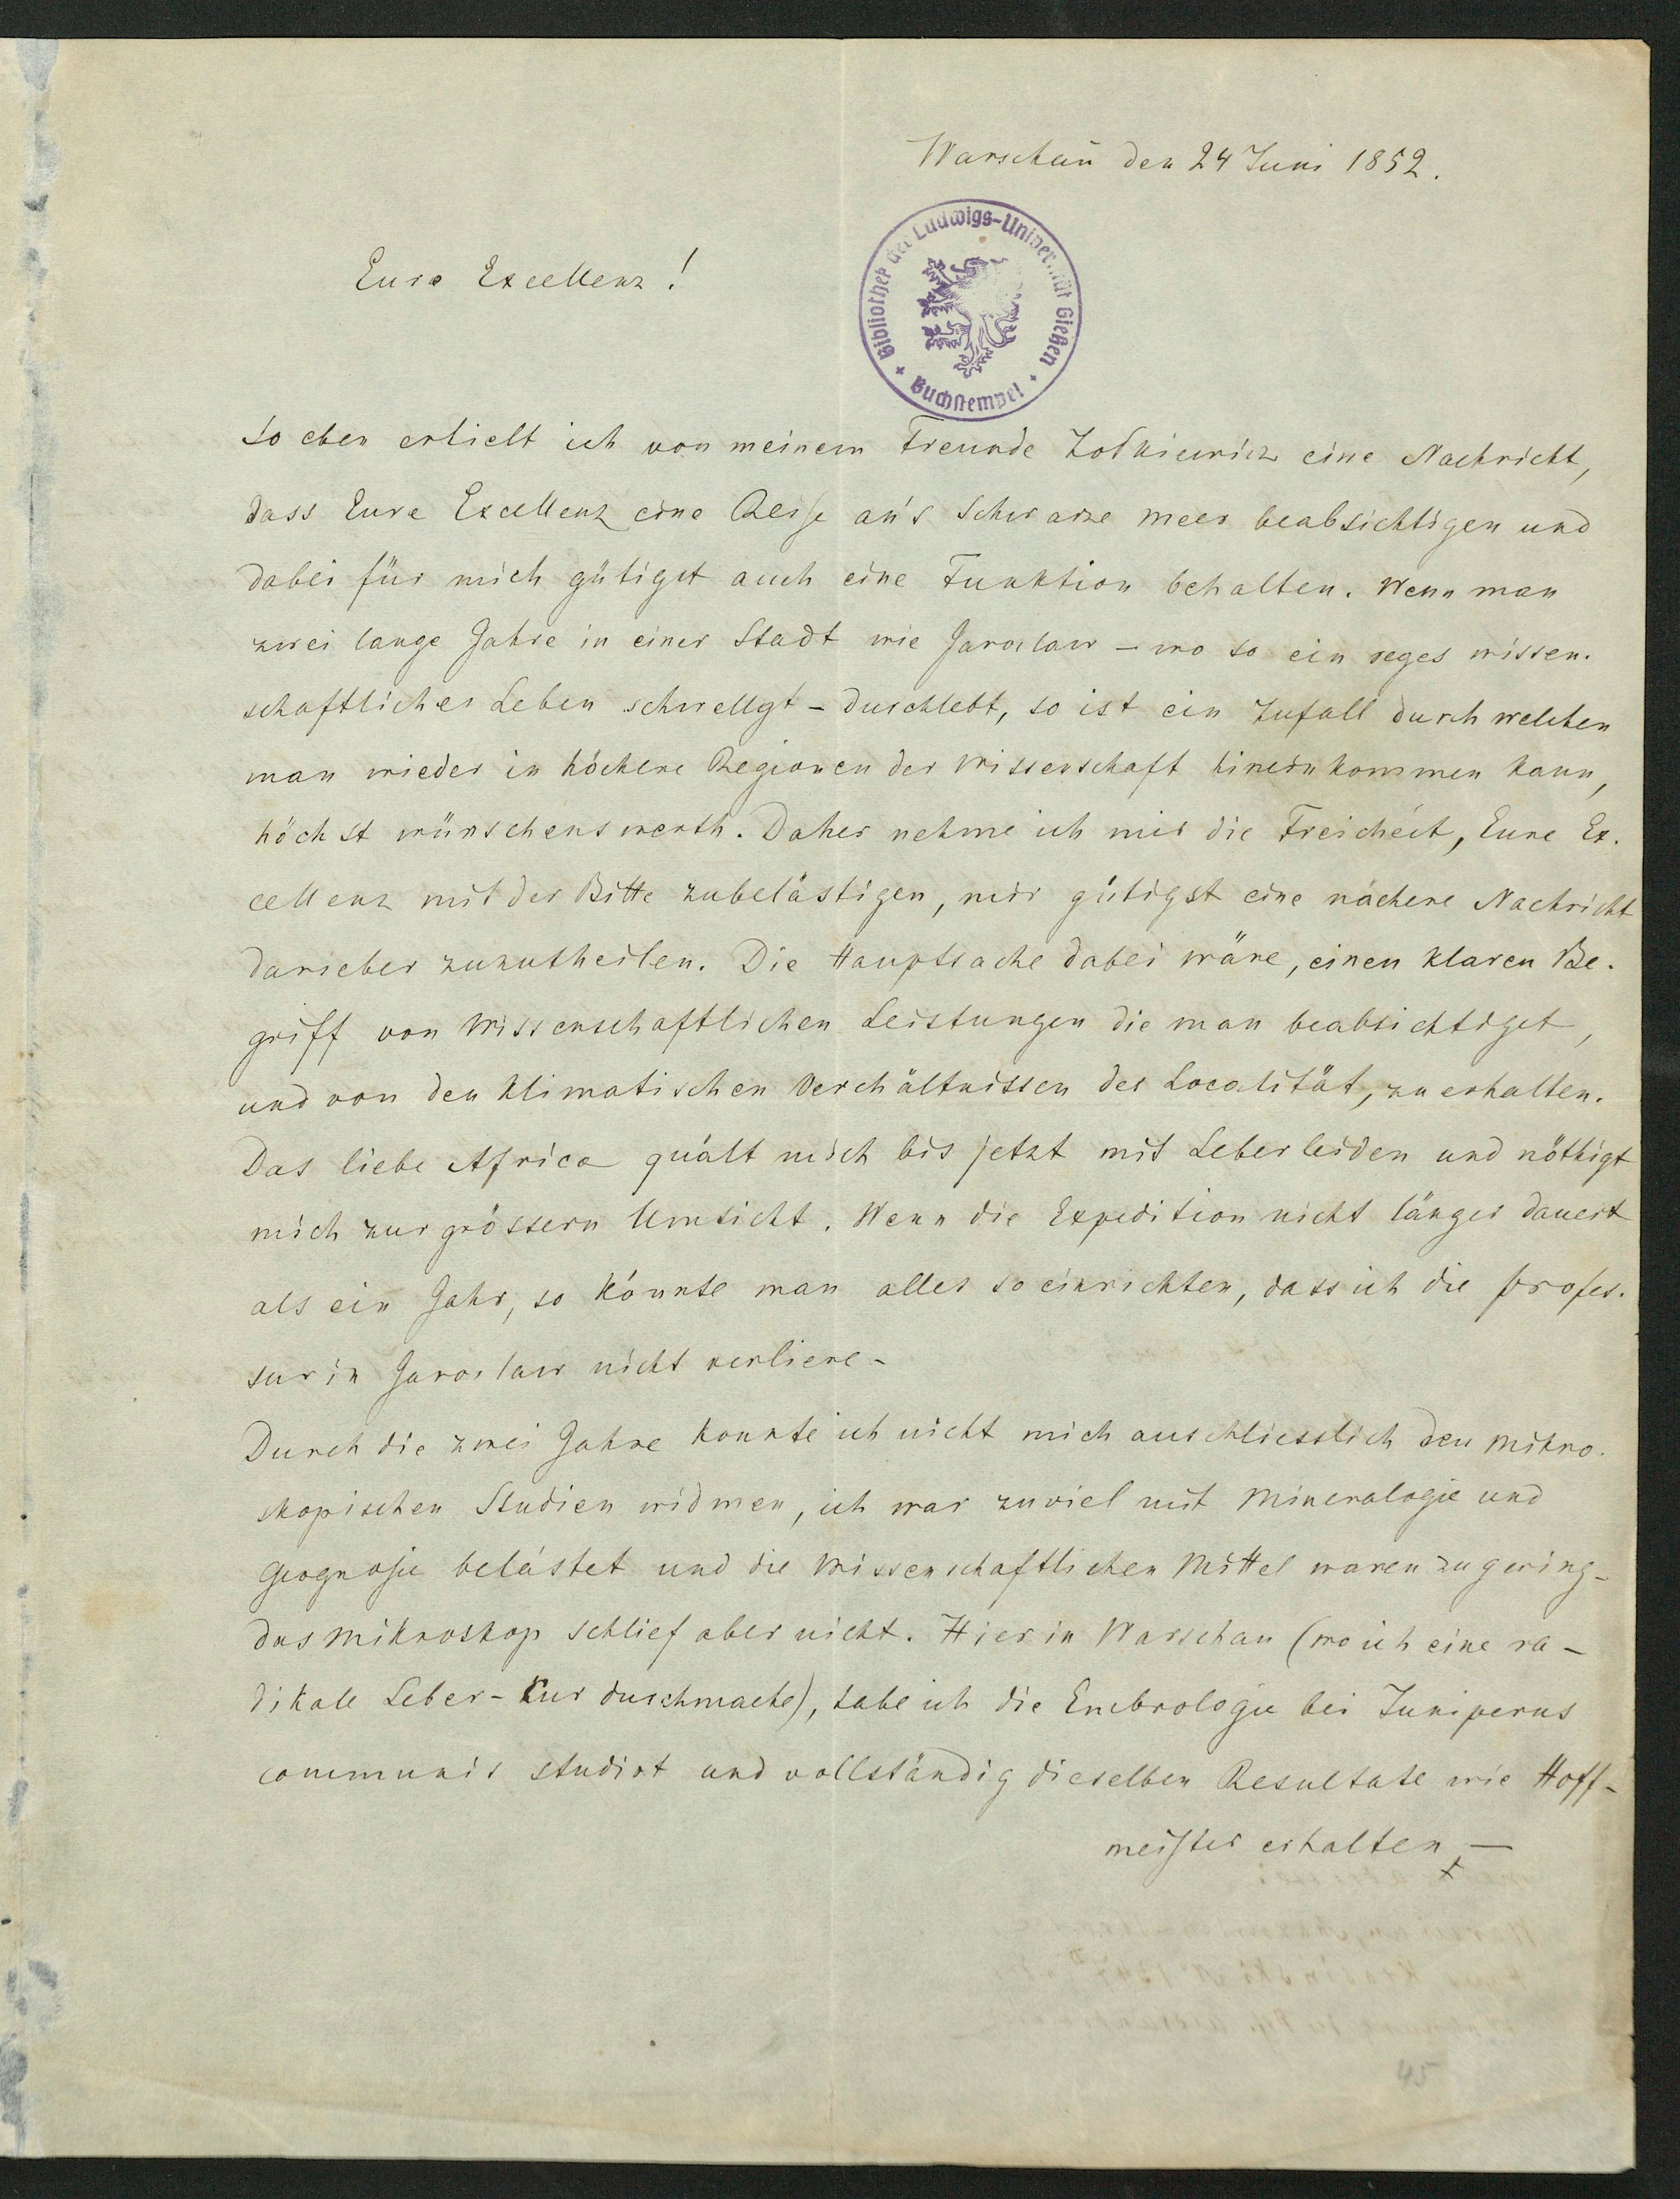 Warschaŭ den 24 Juni 1852.
Bibliothek der Ludwigs-Universität Gießen
+ Buchstempel +
Eure Excellenz!
So eben erhielt ich von meinem Freunde Zołkiewicz eine Nachricht,
dass Eure Excellenz eine Reise an's Schwarze Meer beabsichtigen und
dabei für mich gütigst auch eine Funktion behalten. Wenn man
zwei lange Jahre in einer Stadt wie Jaroslaw – wo so ein reges wissen-
schaftliches Leben schwellgt – durchlebt, so ist ein Zufall durch welchen
man wieder in höchere Regionen der Wissenschaft hinein kommen kann,
höchst wünschenswerth. Daher nehme ich mir die Freicheit, Eure Ex-
cellenz mit der Bitte zubelästigen, mir gütigst eine nächere Nachricht
darieber zuzutheilen. Die Hauptsache dabei wäre, einen klaren Be-
griff von Wissenschaftlichen Leistungen die man beabsichtiget,
und von den Klimatischen Verchältnissen der Localität, zu erhalten.
Das liebe Africa quält mich bis jetzt mit Leberleiden und nöthigt
mich zur grössern Umsicht. Wenn die Expedition nicht länger dauert
als ein Jahr, so könnte man alles so einrichten, dass ich die profes-
sur in Jaroslaw nicht verliere –
Durch die zwei Jahre konnte ich nicht mich auschliesslich den Mikro-
skopischen Studien widmen, ich war zuviel mit Mineralogie und
Geognosie belästet und die Wissenschaftlichen Mittel waren zu gering –
das Mikroskop schlief aber nicht. Hier in Warschau (wo ich eine ra-
dikale Leber-Kur durchmache), habe ich die Embrologie bei Juniperus
communis studirt und vollständig dieselben Resultate wie Hoff-
meister erhalten –
45